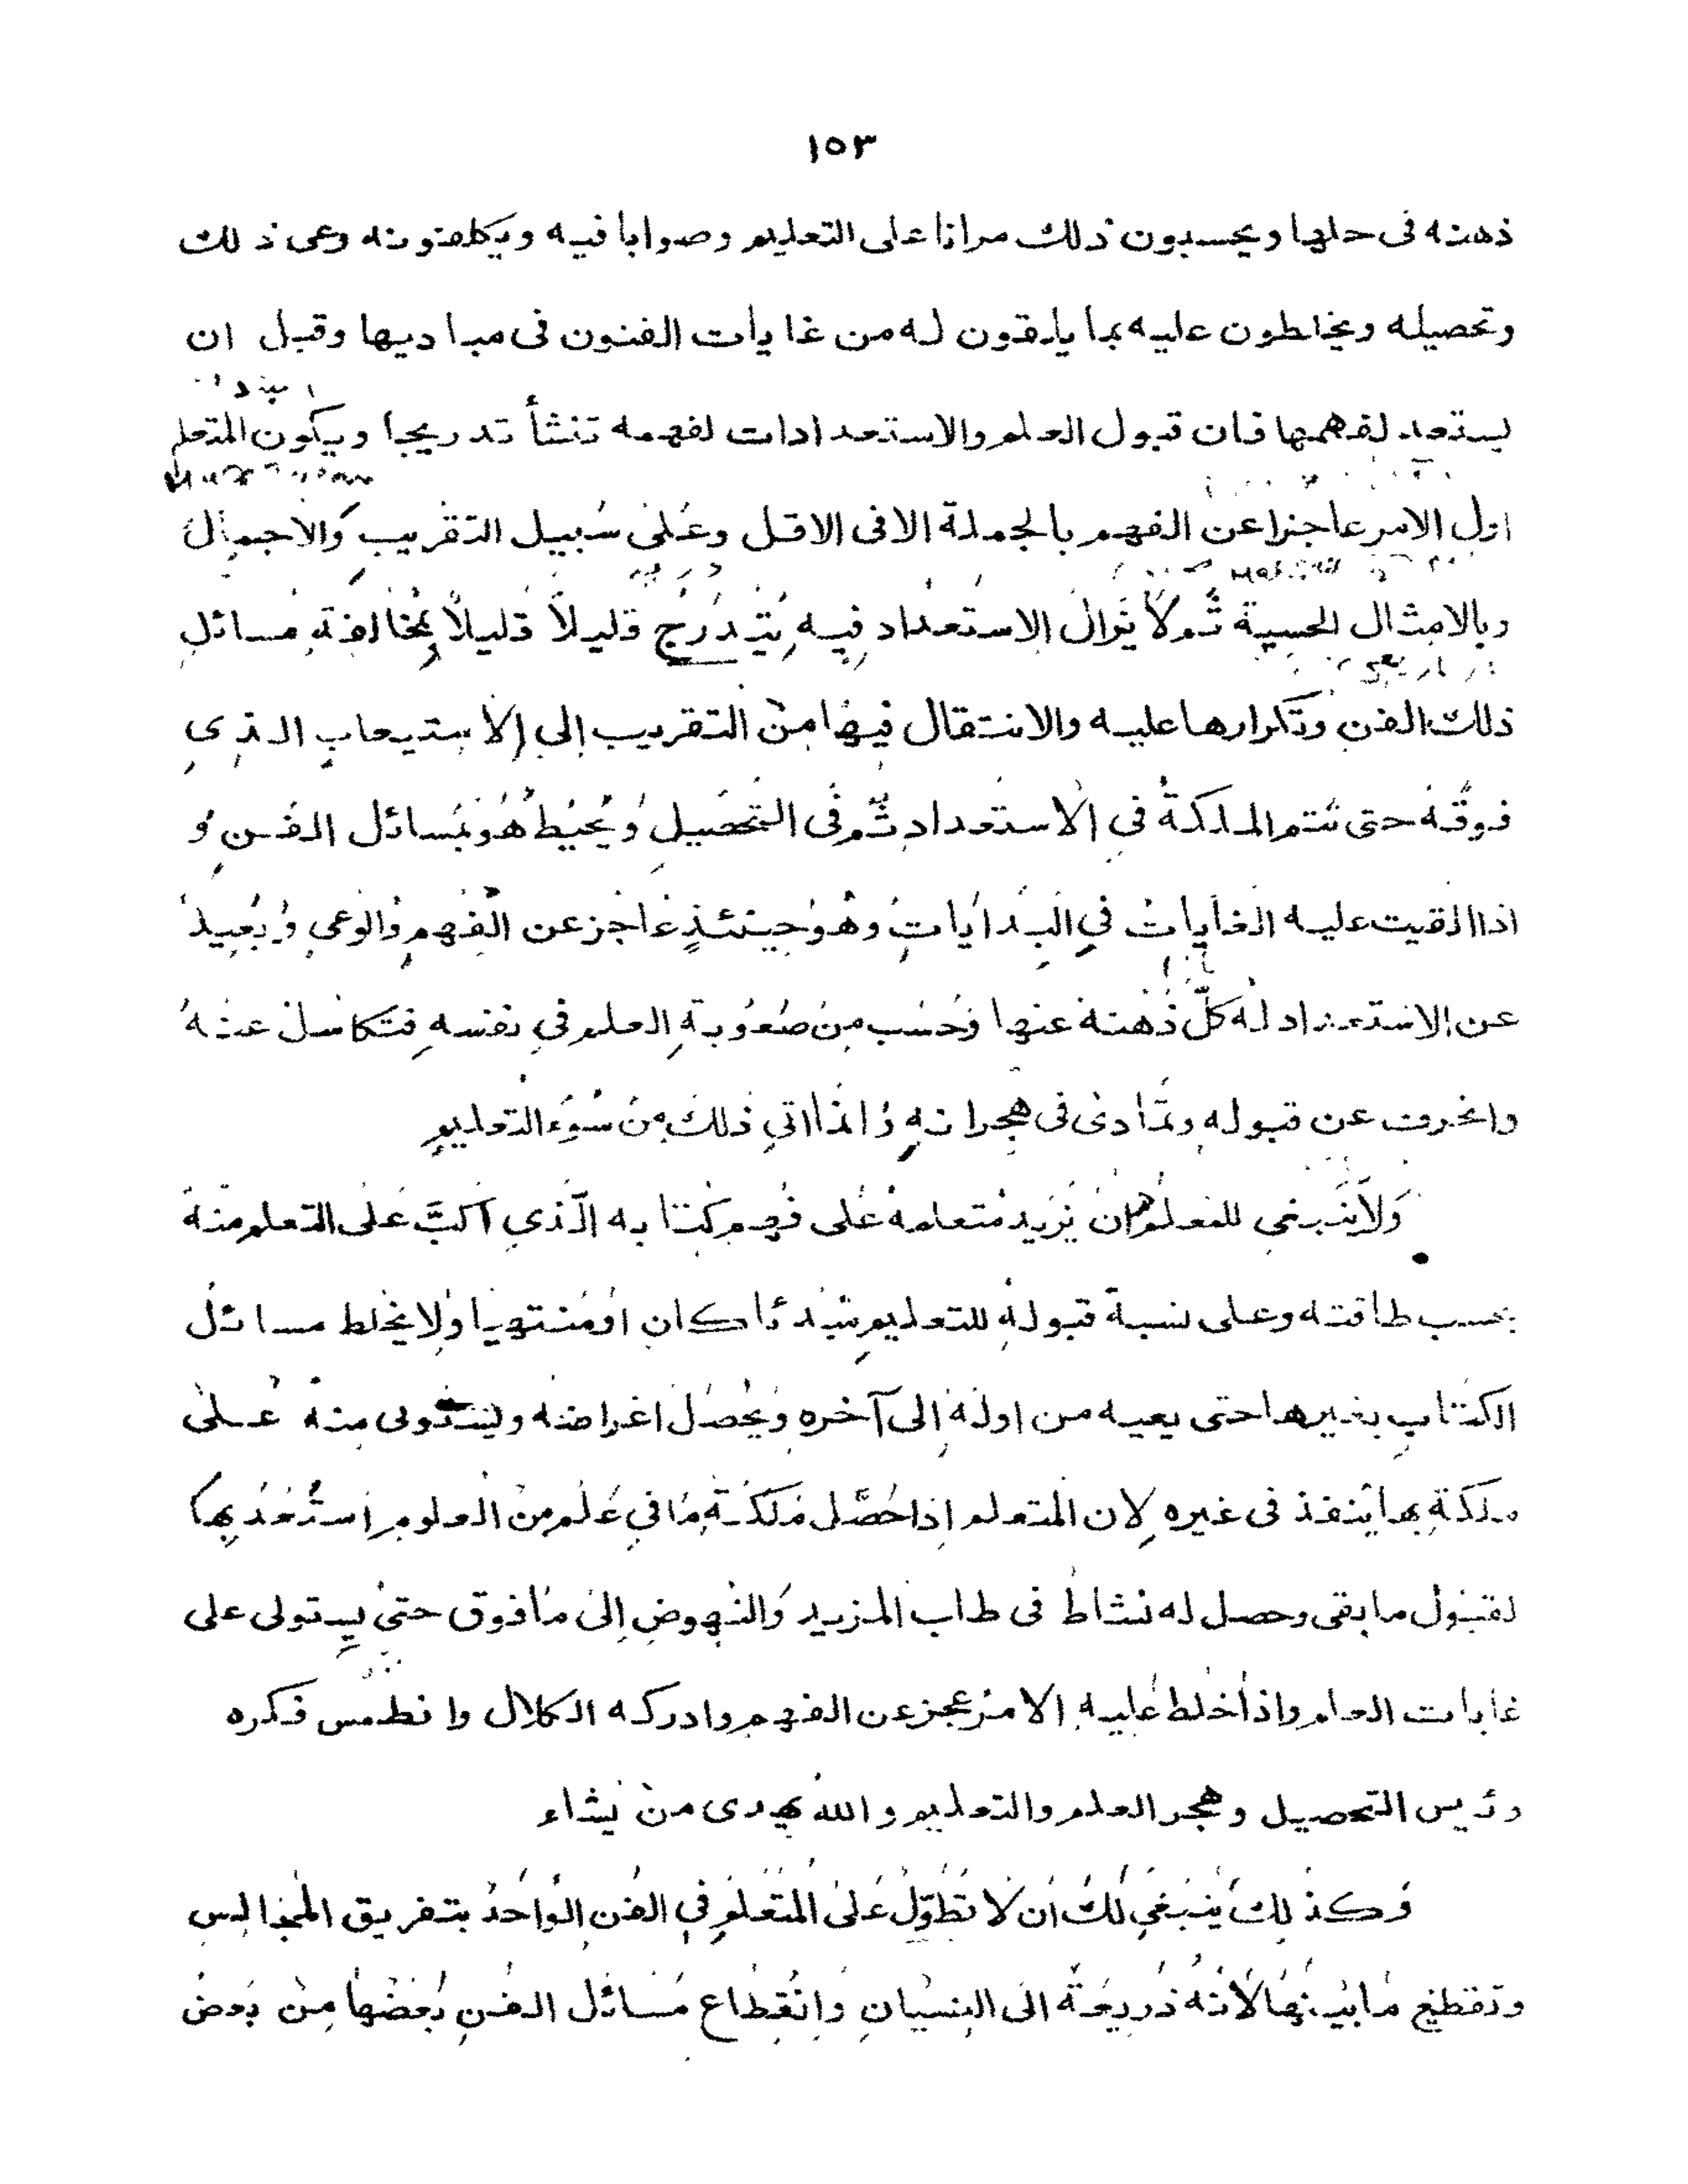 ١٥٣
ذهنه في حلها ويحسبون ذلك مرانا على التعليم وصوابا فيه ويكلفونه وعى ذلك
وتحصيله ويخلطون عليه بما يلقون له من غايات الفنون فى مباديها وقبل ان
يستعد لفهمها فان قبول العلم والاستعدادات لفهمه تنشأ تدريجا ويكون المتعلم
اول الامر عاجزا عن الفهم بالجملة الا فى الاقل وعلى سبيل التقريب والاجمال
وبالامثال الحسية ثم لا يزال الاستعداد فيه يتدرج قليلاً قليلاً بمخالفة مسائل
ذلك الفن وتكرارها عليه والانتقال فيها من التقريب إلى الاستيعاب الذى
فوقه حتى تتم الملكة في الاستعداد ثم فى التحصيل ويحيط هو بمسائل الفن و
اذا القيت عليه الغايات في البدايات وهو حينئذ عاجز عن الفهم والوعي وبعيد
عن الاستعداد له كلّ ذهنه عنها وحسب من صعوبة العلم في نفسه فتكاسل عنه
وانحرف عن قبوله وتمادى فى هجرانه وانما اتى ذلك من سوء التعليم
ولا ينبغي للمعلم ان يزيد متعلمه على فهم كتابه الّذي اكبّ على التعلم منه
بحسب طاقته وعلى نسبة قبوله للتعليم مبتدئا كان او منتهيا ولا يخلط مسائل
الكتاب بغيرها حتى يعيه من اوله إلى آخره ويحصل اغراضه ويستولى منه على
ملكة بها ينفذ فى غيره لان المتعلم اذا حصّل ملكة ما في علم من العلوم استعد بها
لقبول ما بقى وحصل له نشاط فى طلب المزيد والنهوض إلى ما فوق حتى يستولى على
غايات العلم واذا خلط عليه الامر عجز عن الفهم وادركه الكلال وانطمس فكره
وئيس التحصيل وهجر العلم والتعليم والله يهدى من يشاء
وكذلك ينبغي لك ان لا تطوّل على المتعلم في الفن الواحد بتفريق المجالس
وتقطيع ما بينها لانه ذريعة الى النسيان وانقطاع مسائل الفن بعضها من بعض